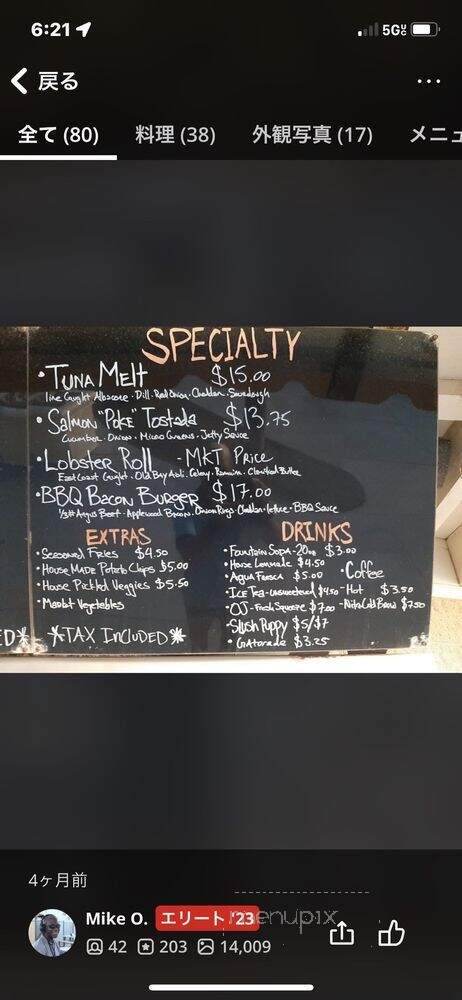 6:21
5G
戻る
全て (80) 料理 (38) 外観写真 (17) メニュ
SPECIALTY
• TUNA MELT $15.00
Line Caught Albacore · Dill · Red Onion · Cheddar · Sourdough
• Salmon "Poke" Tostada $13.75
Cucumber · Onion · Micro Greens · Jetty Sauce
• Lobster Roll - MKT PRICE
East Coast Caught · Old Bay Aioli · Celery · Romaine · Clarified Butter
• BBQ BACON BURGER $17.00
1/3lb Angus Beef · Applewood Bacon · Onion Rings · Cheddar · lettuce · BBQ Sauce
EXTRAS
• Seasoned Fries $4.50
• House Made Potato Chips $5.00
• House Pickled Veggies $5.50
• Market Vegetables
ED* - *TAX INCLUDED*
DRINKS
• Fountain Soda - 20oz $3.00
• House Lemonade $4.50
• Agua Fresca $5.00
• ICE Tea - unsweetened $4.50
• OJ - Fresh Squeeze $7.00
• Slush Puppy $5/$7
• Gatorade $3.25
• Coffee
- Hot $3.50
- Nitro Cold Brew $7.50
4ヶ月前
Mike O. エリート '23
menupix
42 203 14,009